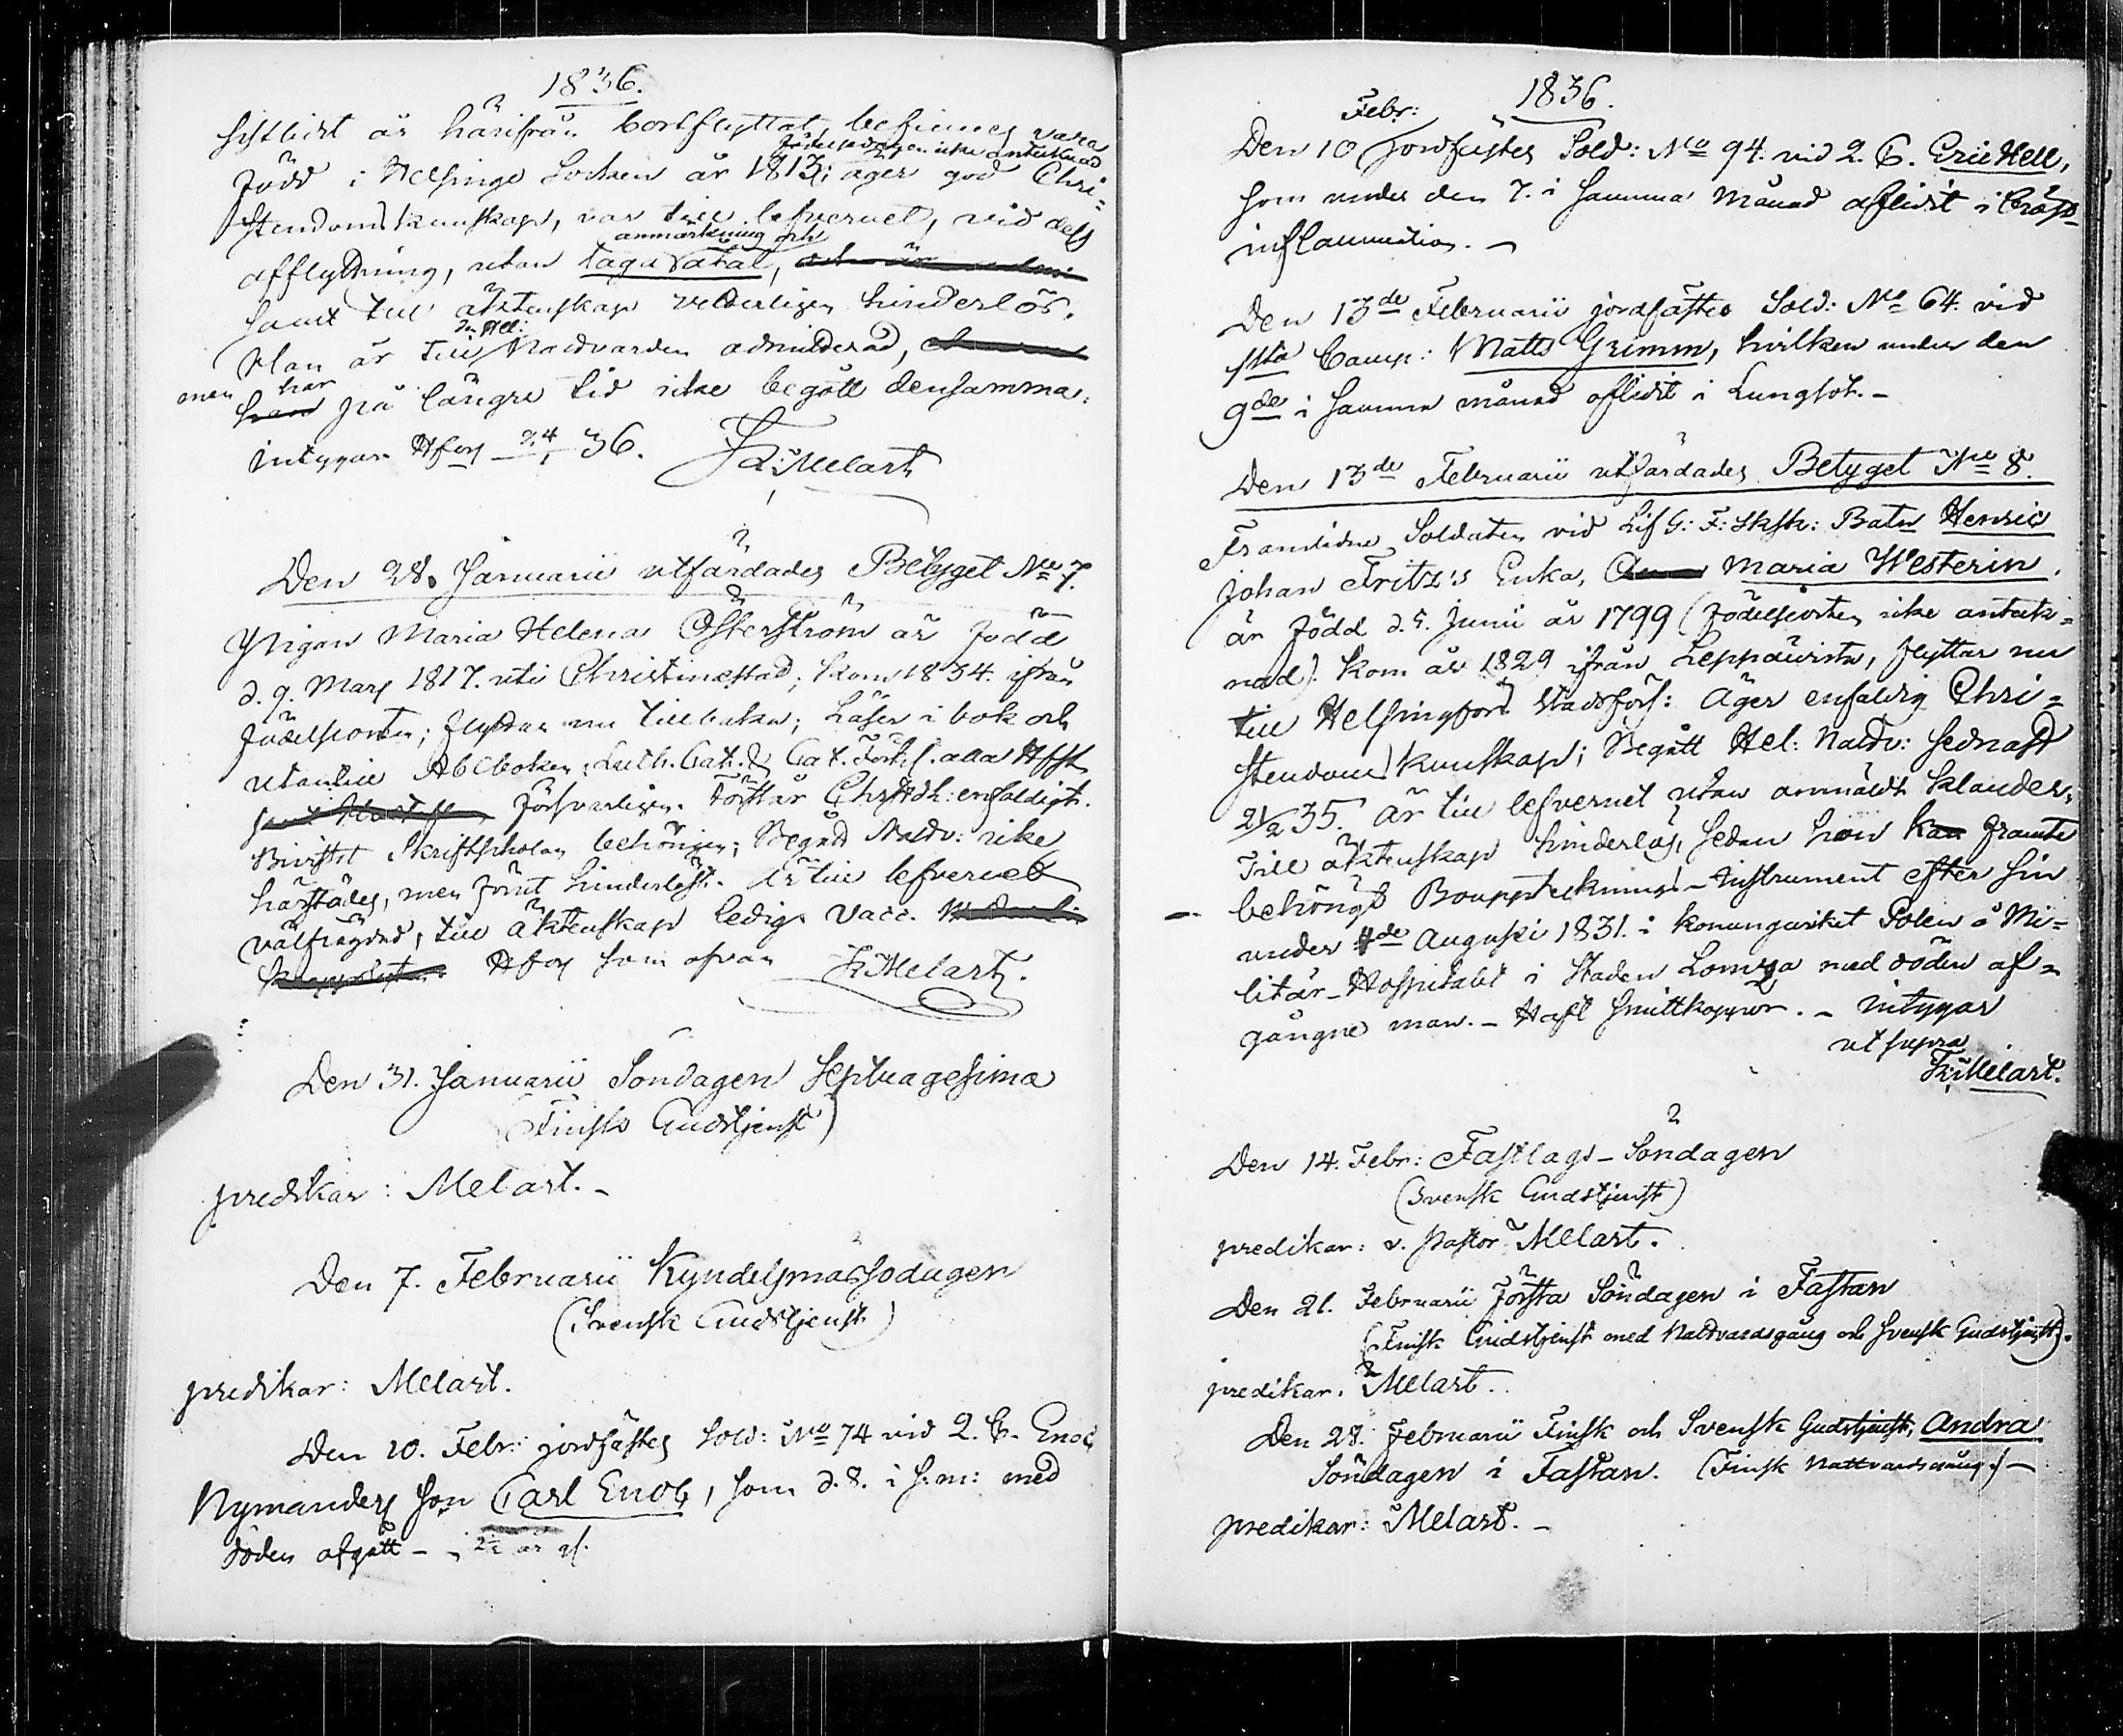 1836.
sistlidit år härifrån bortflyttat, befinnes vara
födelsedagen icke antecknad
född i Helsinge Socken år 1813; äger god Chri-
stendomskunskap, var till lefvernet, vid dess
anmärkning och
afflyttning, utan laga åtal,
samt till äktenskap veterligen hinderlös.
Den Hel:
Han är till Nattvarden admitterad,
men har på längre tid icke begått densamma.
intygar Hfors 24/1 36. Fr: Melart
Den 28. Januarii utfärdades Betyget No 7.
Pigan Maria Helena Österström är född
d. 9. Mars 1817. uti Christinestad; kom 1834. ifrån
födelseorten; flyttar nu tillbaka; Läser i bok och
utantill Abcboken, Luth. Cat. & Cat. Förkl. alla Hfst
försvarligen. Förstår Christdk: enfaldigt.
Bivistat Skriftskolan behörigen; Begått Nattv: icke
härstädes, men förut hinderlöst. Är till lefvernet
välfrägdad, till äktenskap ledig. Vacc.
Hfors som ofvan Fr: Melart.
Den 31. Januarii Söndagen Septuagesima
(Finsk Gudstjenst)
predikar: Melart. -
Den 7. Februarii Kyndelsmässodagen
(Svensk Gudstjenst)
predikar: Melart.
Den 10. Febr: jordfästes Sold: No 74 vid 2. C. Enoc
Nymanders son Carl Enoc, som d. 8. i s: m: med
döden afgått - 2½ år gl.
1836.
Febr:
Den 10 jordfästes Sold: No 94. vid 2. C. Eric Hell,
som under den 7. i samma Månad aflidit i Bröst-
inflammation. -
Den 13de Februarii jordfästes Sold: No 64. vid
1sta Comp: Matts Grimm, hvilken under den
9de i samma månad aflidit i Lungsot. -
Den 13de Februarii utfärdades Betyget No 8.
Framlidne Soldaten vid Lif G: F: Sksk: Batn Henric
Johan Fritz's Enka, Maria Westerin,
är född d. 5. Junii år 1799 (Födelseorten icke anteck-
nad). Kom år 1829 ifrån Leppävirta, flyttar nu
till Helsingfors Stadsförs: Äger enfaldig Chri-
stendoms kunskap; Begått Hel: Nattv: sednast
21/2 35. Är till lefvernet utan anmäldt klander,
Till äktenskap hinderlös, sedan hon framte
- behörigt Bouppteknings-Instrument efter sin
under 4de Augusti 1831. i Konungariket Polen å Mi-
litär-Hospitalet i Staden Lomza med döden af-
gångne man. - Haft smittkoppor. - Intygar
ut supra
Fr: Melart.
Den 14. Febr: Fastlags-Söndagen
(Svensk Gudstjenst)
predikar: v. Pastor Melart.
Den 21. Februarii Första Söndagen i Fastan
(Finsk Gudstjenst med Nattvardsgång och Svensk Gudstjenst).
predikar. Melart.
Den 28. Februarii Finsk och Svensk Gudstjenst, Andra
Söndagen i Fastan. (Finsk Nattvardsgång) -
predikar: Melart. -